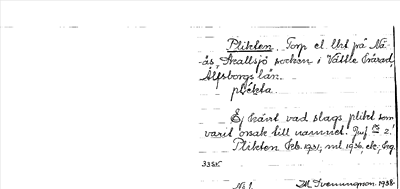 Plikten. Torp el. lht på Nä-
ås, Skallsjö socken i Vättle härad,
Älfsborgs län.
plékta
Ej känt vad slags plikt som
varit orsak till namnet. Jmf 2!
Plikten Feb. 1931, ml 1936, ek, Eng.
335r.
No 1. M. Svenungson. 1938.